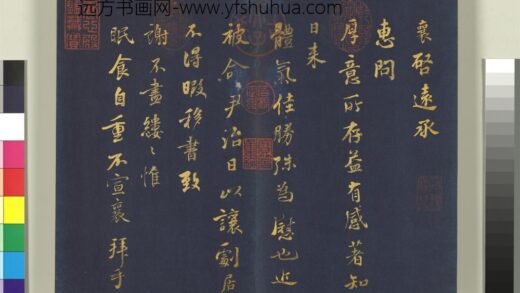 远方书画网 -- www.yfshuhua.com
襄啓遠承
惠問
厚意所存益有感著知
日来
體氣佳勝殊為慰也近
被命尹治日以讓劇居
不得暇移書致
謝不盡縷々惟
眠食自重不宣襄拜手